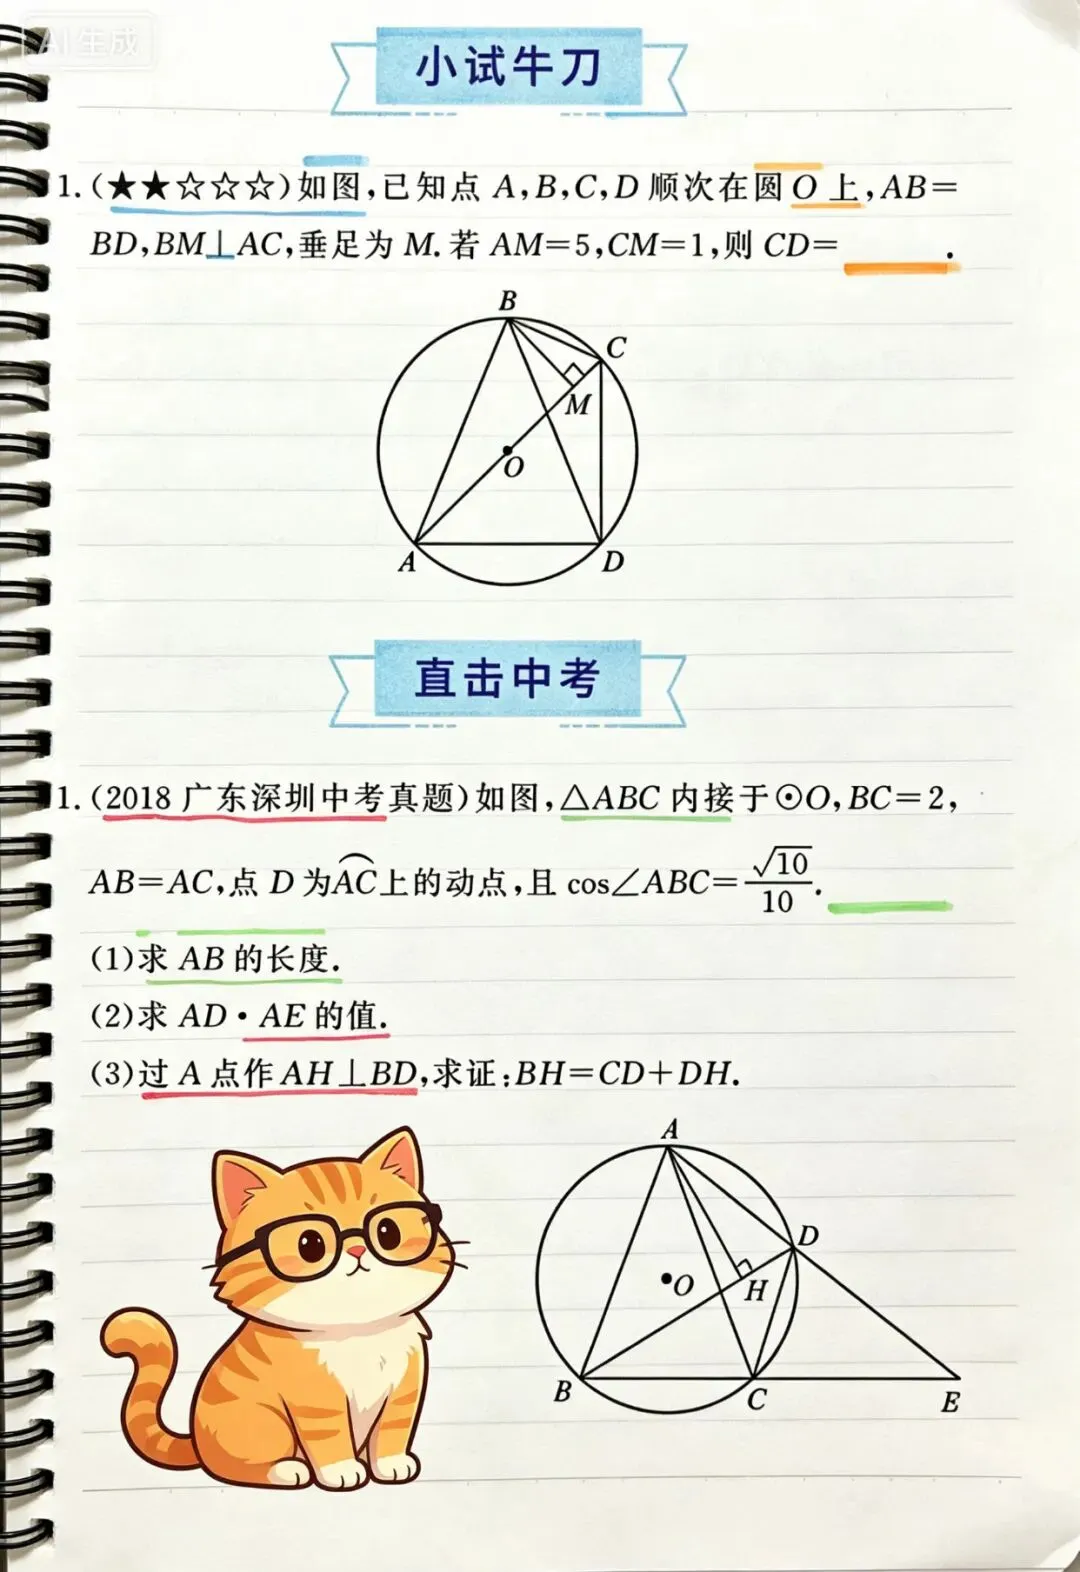 AI生成
小试牛刀
1.(★★☆☆☆)如图,已知点 A,B,C,D 顺次在圆 O 上,AB=
BD,BM⊥AC,垂足为 M.若 AM=5,CM=1,则 CD=______.
B
C
M
O
A
D
直击中考
1.(2018 广东深圳中考真题)如图,△ABC 内接于⊙O,BC=2,
AB=AC,点 D 为⌒AC上的动点,且 cos∠ABC=√10/10.
(1)求 AB 的长度.
(2)求 AD·AE 的值.
(3)过 A 点作 AH⊥BD,求证:BH=CD+DH.
A
D
O
H
B
C
E